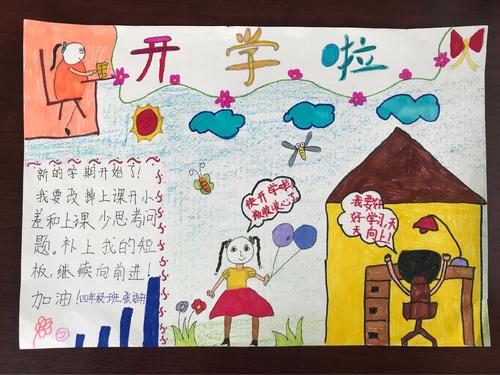 开学啦
新的学期开始了!
我要改掉上课开小
差和上课少思考问
题。补上我的短
板,继续向前进!
加油!四年级一班
快开学啦!
我要好
好学习,天
天向上!